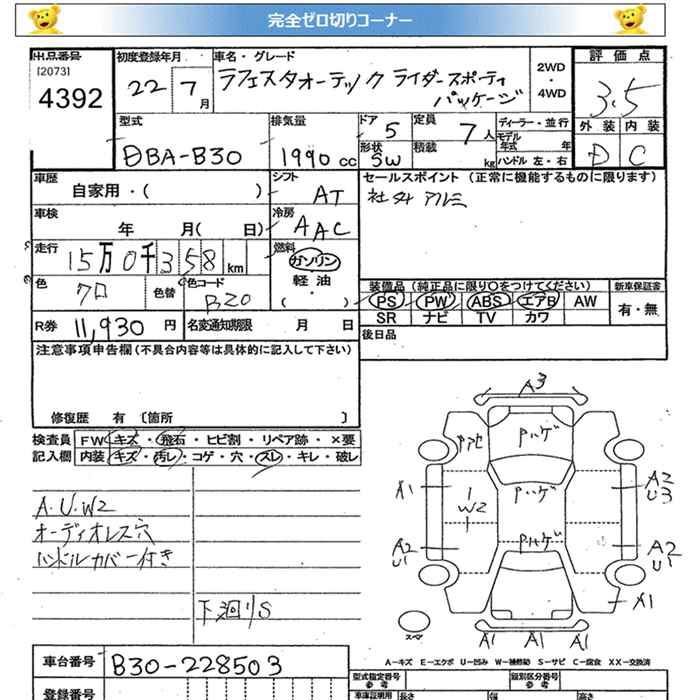 完全ゼロ切りコーナー
出品番号
[2073]
4392
初度登録年月
22 7月
車名・グレード
ラフェスタオーテック ライダースポーティ
パッケージ
2WD
・
4WD
評価点
3.5
外装 内装
D C
型式
DBA-B30
排気量
1990 cc
ドア 5
形状 SW
定員 7人
積載 kg
ディーラー・並行
モデル年式 年
ハンドル 左・右
車歴
自家用・( )
シフト
AT
セールスポイント (正常に機能するものに限ります)
社外アルミ
車検
年 月( 日)
冷房
AAC
走行
15万0千358km
燃料
ガソリン
軽油
・
( )
色
クロ
色替
色コード
B20
装備品 (純正品に限り○をつけてください)
PS PW ABS エアB AW
SR ナビ TV カワ
新車保証書
有・無
R券 11,930 円
名変通知期限 月 日
後日品
注意事項申告欄(不具合内容等は具体的に記入して下さい)
修復歴 有 〔箇所 〕
検査員
記入欄
FW キズ・飛石・ヒビ割・リペア跡・×要
内装 キズ・汚レ・コゲ・穴・スレ・キレ・破レ
A.U.W2
オーディオレス穴
ハンドルカバー付き
下廻りS
A3
Pハゲ
Pハゲ
Pハゲ
A1
W2
A2
U3
A2
U1
A2
U1
A1
A1 A1 A1
A−キズ E−エクボ U−凹み W−補修跡 S−サビ C−腐食 XX−交換済
車台番号
B30-228503
登録番号
型式指定番号
参考
類別区分番号
参考
車庫証明用 長さ 幅 高さ